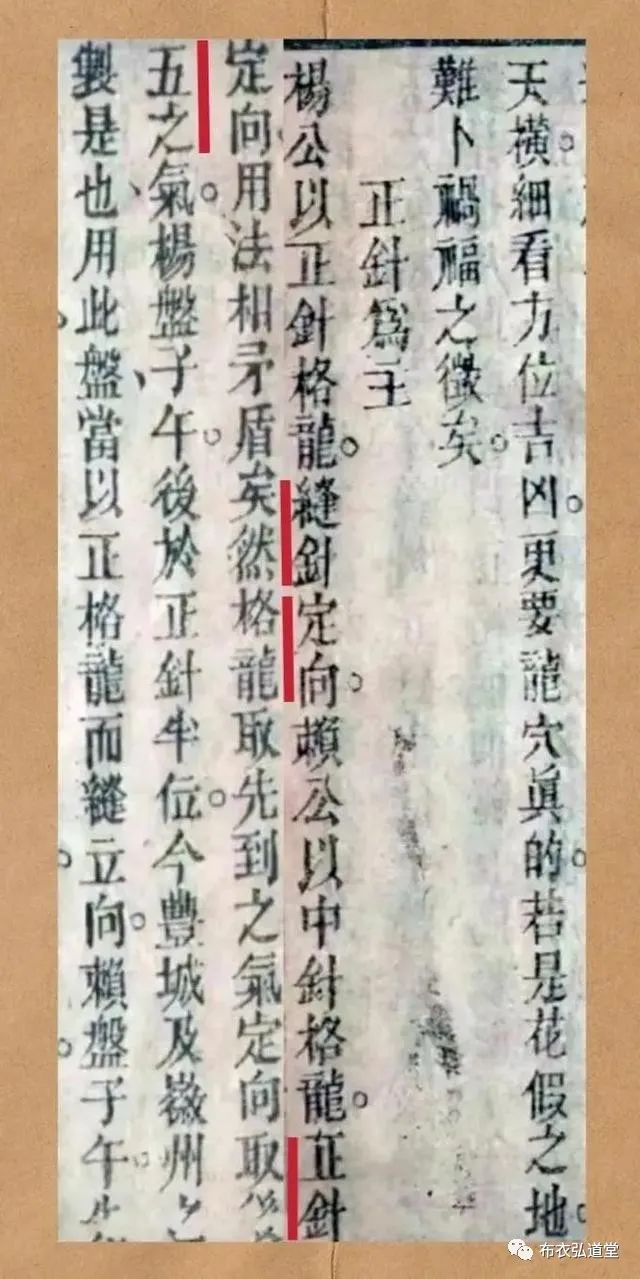 天橫。細看方位吉凶。更要龍穴眞的。若是花假之地。
難卜禍福之徵矣。
正針爲主
楊公以正針格龍。縫針定向。賴公以中針格龍。正針
定向用法相矛盾矣然格龍取先到之氣定向取
五之氣。楊盤子午。後於正針半位。今豐城及徽州
製是也用此盤當以正格龍而縫立向。賴盤子午。
布衣弘道堂